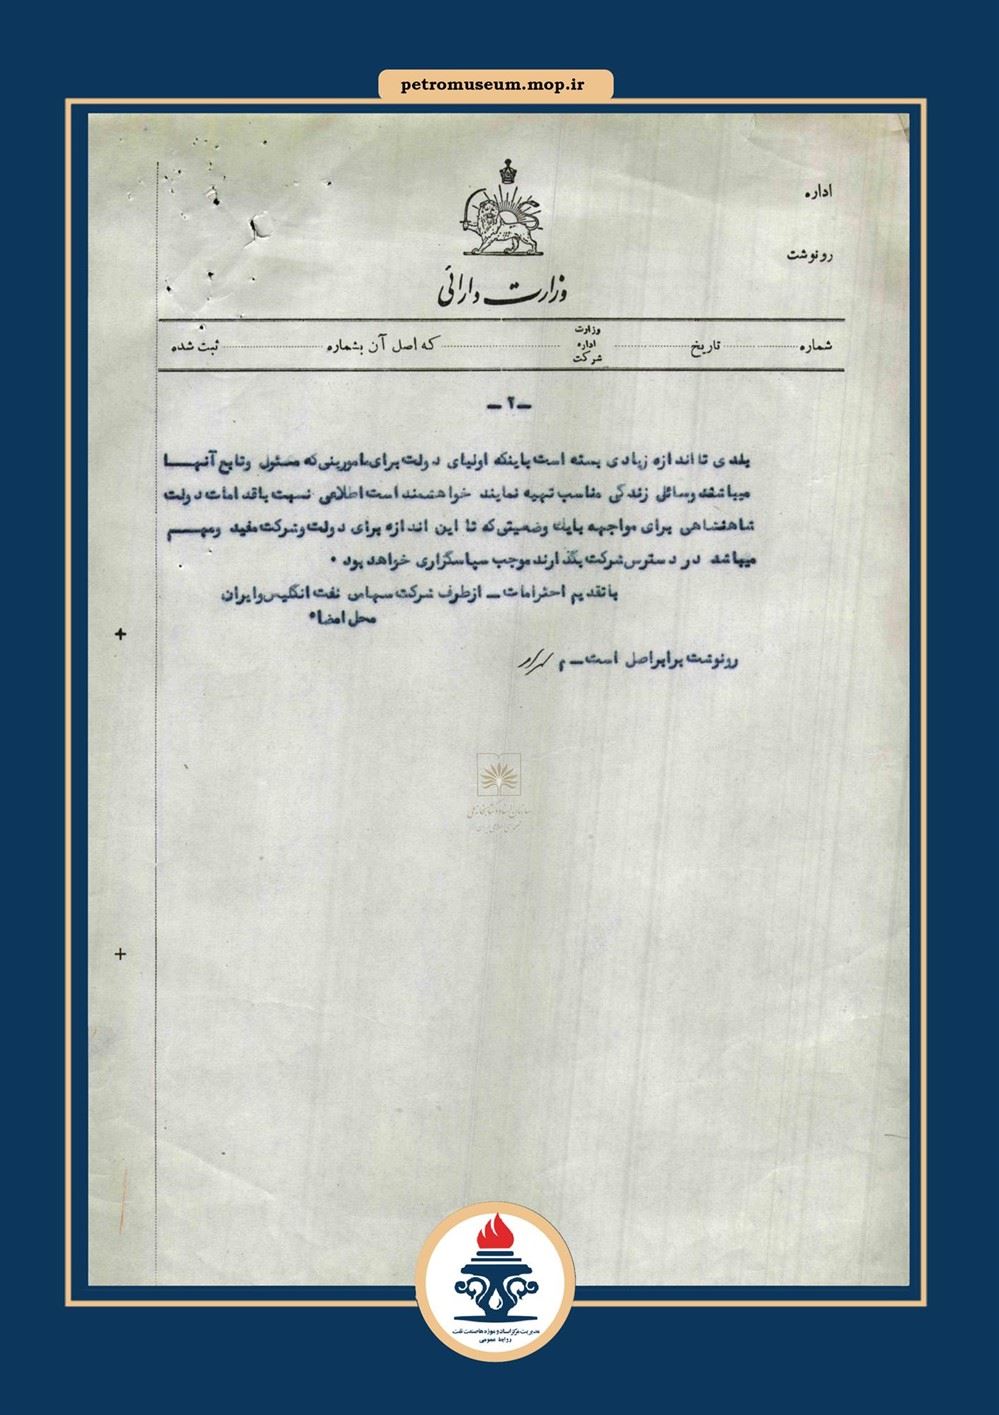 petromuseum.mop.ir
اداره
رونوشت
وزارت دارائی
شماره .......... تاریخ .......... وزارت اداره شرکت .......... که اصل آن بشماره .......... ثبت شده
ـ ۲ ـ
بلدی تا اندازه زیادی بسته است باینکه اولیای دولت برای مامورینی که مسئول وتابع آنهـا
میباشند وسائل زندگی مناسب تهیه نمایند خواهشمند است اطلاعی نسبت باقدامات دولت
شاهنشاهی برای مواجهه بایك وضعیتی که تا این اندازه برای دولت وشرکت مفید ومهـم
میباشد در دسترس شرکت بگذارند موجب سپاسگزاری خواهد بود •
باتقدیم احترامات ـ ازطرف شرکت سهامی نفت انگلیس وایران
محل امضاء
رونوشت برابر اصل است ـ م
سازمان اسناد و کتابخانه ملی
جمهوری اسلامی ایران
مدیریت مرکز اسناد و موزه ها صنعت نفت
روابط عمومی